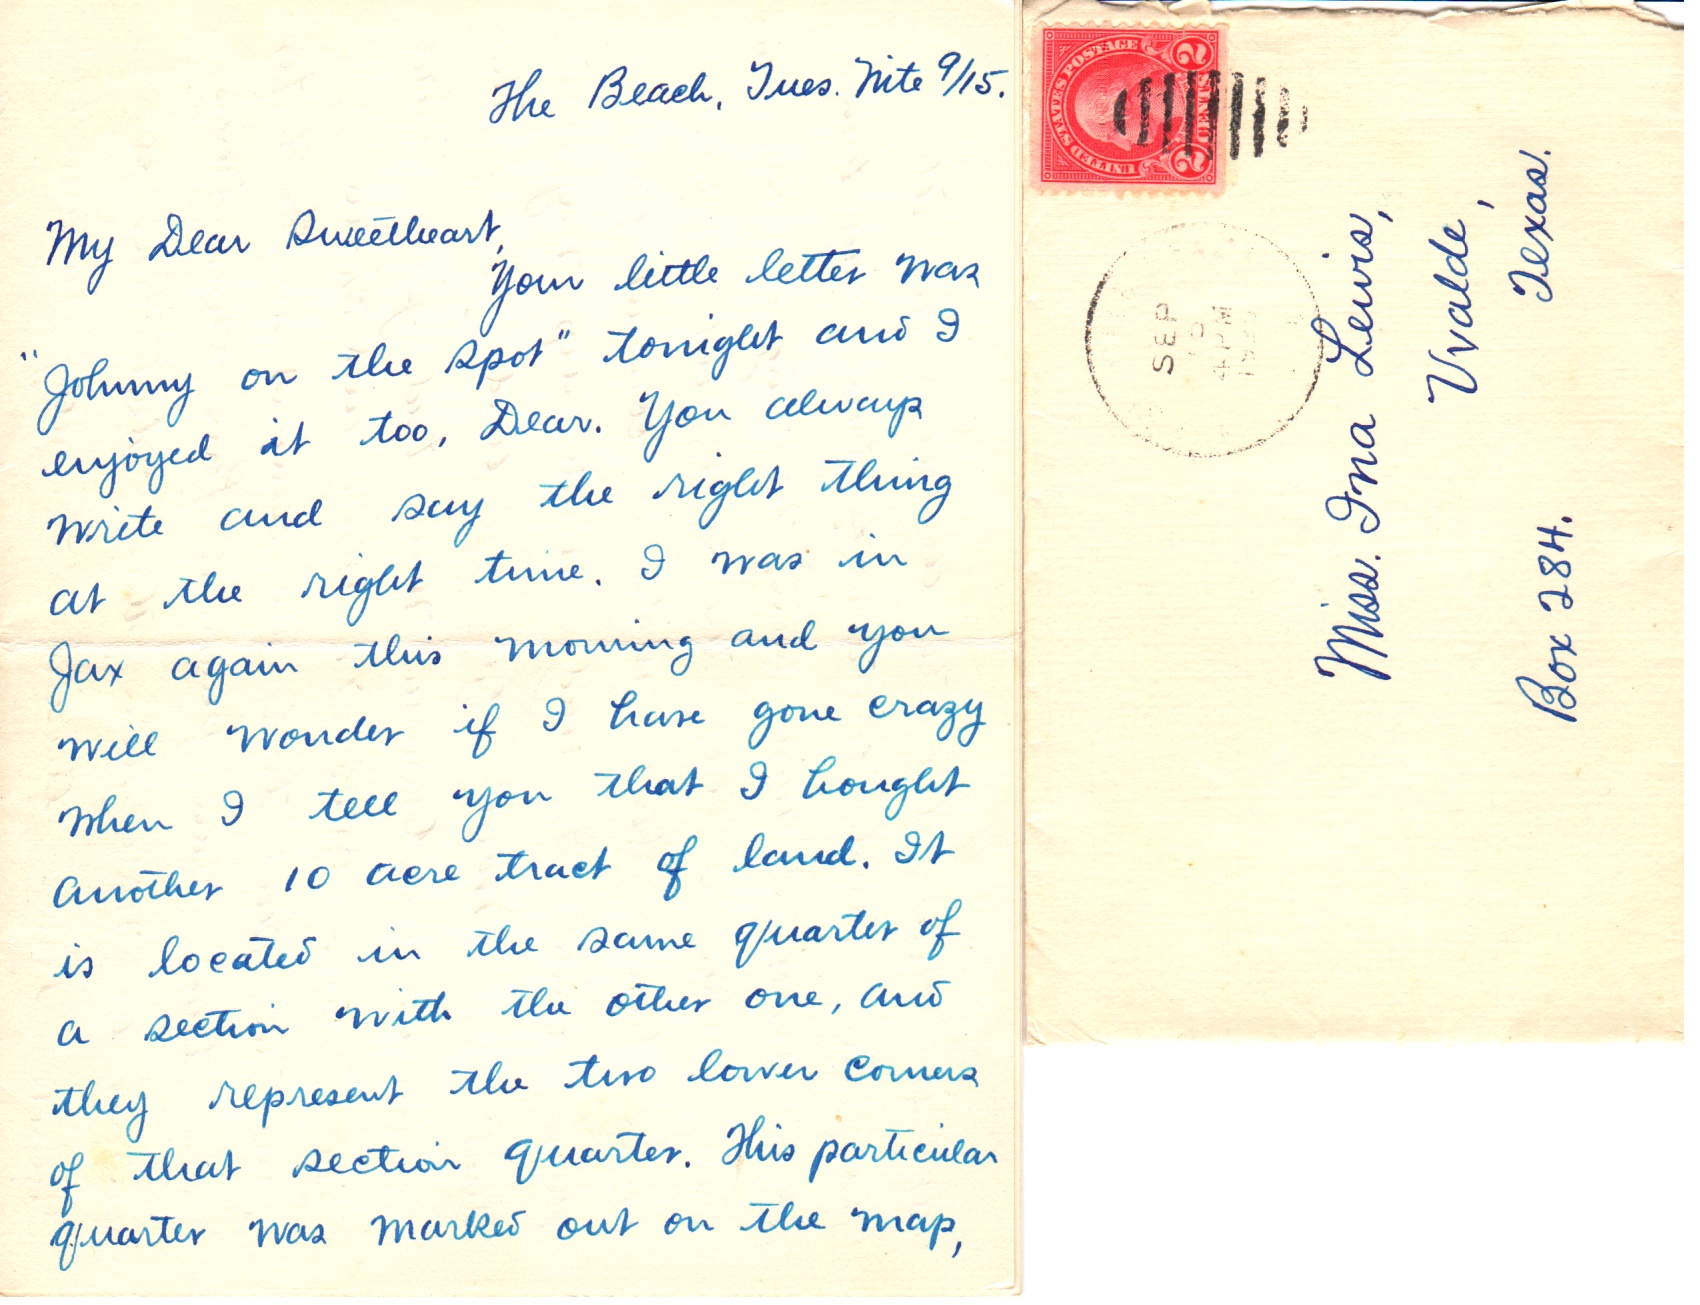 The Beach, Tues. Nite 9/15.
My Dear Sweetheart,
Your little letter was
"Johnny on the spot" tonight and I
enjoyed it too, Dear. You always
write and say the right thing
at the right time. I was in
Jax again this morning and you
will wonder if I have gone crazy
when I tell you that I bought
another 10 acre tract of land. It
is located in the same quarter of
a section with the other one, and
they represent the two lower corners
of that section quarter. This particular
quarter was marked out on the map,
UNITED STATES POSTAGE
2 CENTS 2
SEP
4 PM
Miss. Ina Lewis,
Uvalde,
Texas.
Box 284.